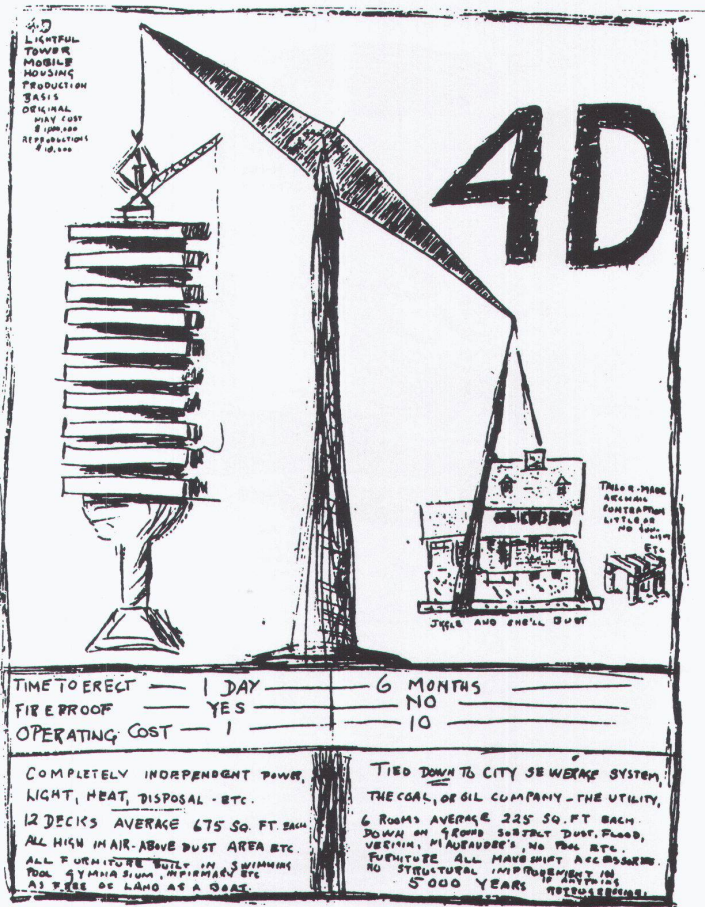 4D
LIGHTFUL
TOWER
MOBILE
HOUSING
PRODUCTION
BASIS
ORIGINAL
MAY COST
$ 1,000,000
REPRODUCTIONS
$ 10,000
4D
TAILOR-MADE
ARCHAIC
CONTRAPTION
LITTLE OR
NO SUN-
LIGHT
ETC
JIGGLE AND SHE'LL BUST
TIME TO ERECT — 1 DAY — 6 MONTHS
FIREPROOF — YES — NO
OPERATING COST — 1 — 10
COMPLETELY INDEPENDENT POWER,
LIGHT, HEAT, DISPOSAL - ETC.
12 DECKS AVERAGE 675 SQ. FT. EACH
ALL HIGH IN AIR - ABOVE DUST AREA ETC.
ALL FURNITURE BUILT IN, SWIMMING
POOL GYMNASIUM, INFIRMARY ETC
AS FREE OF LAND AS A BOAT.
TIED DOWN TO CITY SEWERAGE SYSTEM,
THE COAL, OR OIL COMPANY - THE UTILITY,
6 ROOMS AVERAGE 225 SQ. FT EACH
DOWN ON GROUND SUBJECT DUST, FLOOD,
VERMIN, MAURAUDER'S, NO POOL ETC.
FURNITURE ALL MAKESHIFT ACCESSORIES.
NO STRUCTURAL IMPROVEMENT IN
5000 YEARS IF ANYTHING
RETROGRESSION.